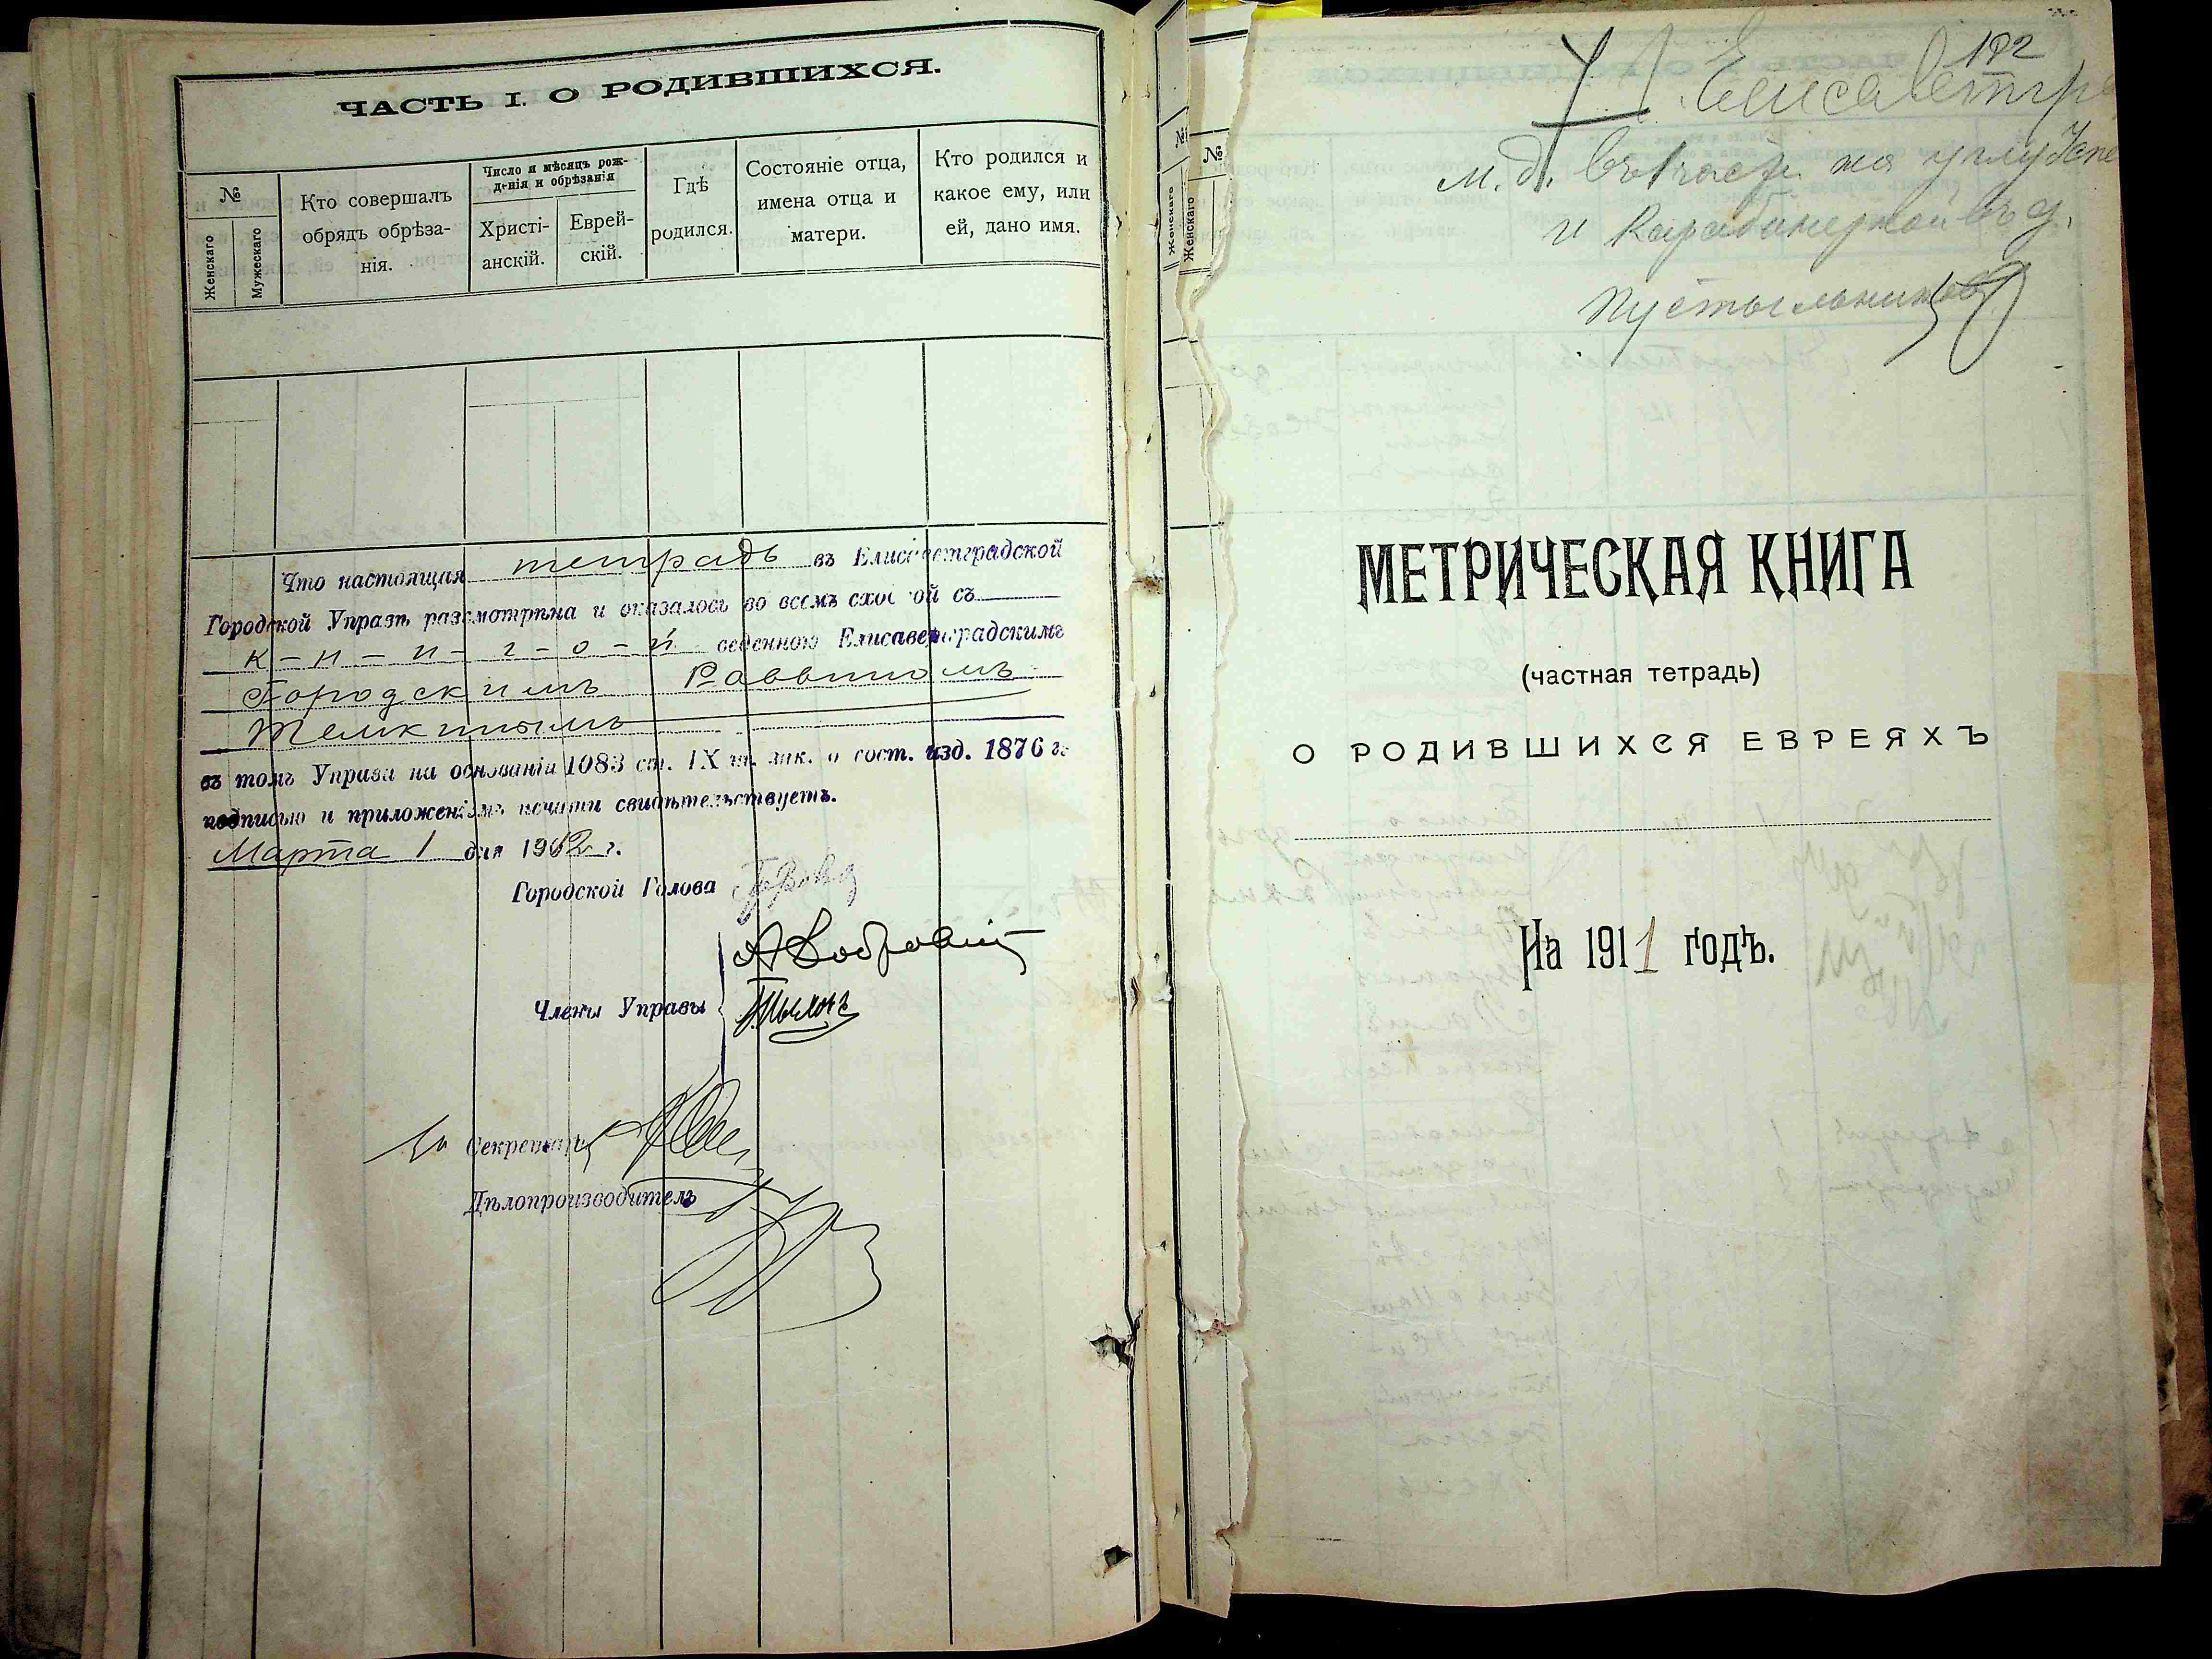 ЧАСТЬ I. О РОДИВШИХСЯ.
№
Женскаго
Мужескаго
Кто совершалъ
обрядъ обрѣза-
нія.
Число и мѣсяцъ рож-
денія и обрѣзанія
Христі-
анскій.
Еврей-
скій.
Гдѣ
родился.
Состояніе отца,
имена отца и
матери.
Кто родился и
какое ему, или
ей, дано имя.
Что настоящая тетрадь въ Елисаветградской
Городской Управѣ разсмотрѣна и оказалось во всемъ сходной съ
к-н-и-г-о-й веденною Елисаветградскимъ
Городскимъ Раввиномъ
Темкинымъ
въ томъ Управа на основаніи 1083 ст. IX т. зак. о сост. изд. 1876 г.
подписью и приложеніемъ печати свидѣтельствуетъ.
Марта 1 дня 1912 г.
Городской Голова
Члены Управы
Секретарь
Дѣлопроизводитель
№
Женскаго
№
Женскаго
192
Елисаветгр
м. д. въ 1 части на углу
и Карабинерной въ д.
Пустыльникова
МЕТРИЧЕСКАЯ КНИГА
(частная тетрадь)
О РОДИВШИХСЯ ЕВРЕЯХЪ
На 1911 годъ.